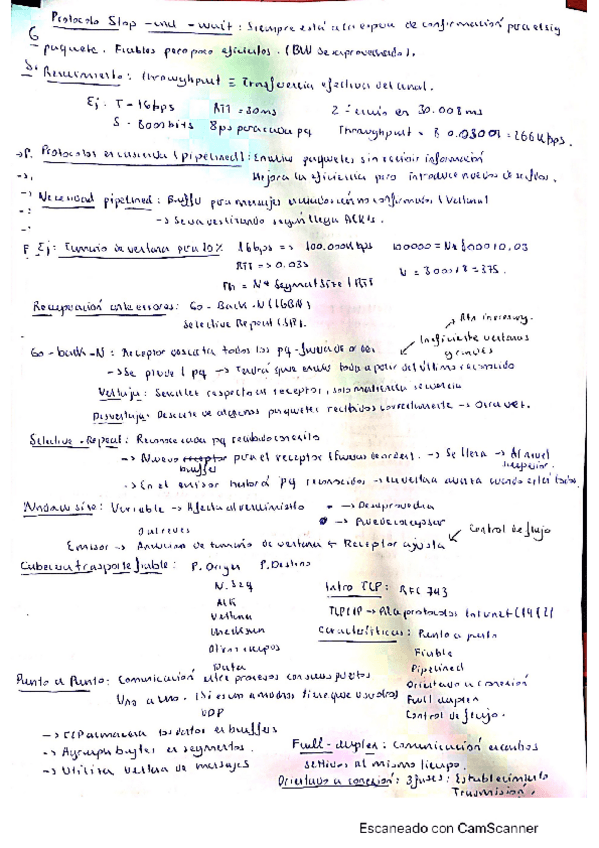 Protocolo Stop-and-wait: Siempre está a la espera de confirmación para el sig
paquete. Fiables pero poco eficientes. (BW desaprovechado).
Rendimiento: Throwghput ≡ Transferencia efectiva del canal.
Ej. T - 1Gbps RTT = 30ms 2 envío en 30.008 ms
S - 8000bits 8 para cada pq Throwghput =
Protocolos en cascada (pipelined): Enviar paquetes sin recibir información
Mejora la eficiencia pero introduce nuevos desafíos.
Necesidad pipelined: Buffer para mensajes enviados aún no confirmados (Ventana)
-> Se va vaciando según llega ACKs.
Ej: Tamaño de ventana para 10% 1Gbps => 100.000Kbps
RTT => 0.03s
Th = N* SegmentSize / RTT
Recuperación ante errores: Go-Back-N (GBN)
Selective Repeat (SR).
Ineficiente ventanas
grandes
Go-back-N: Receptor descarta todos los pq fuera
-> Se pierde 1 pq -> Tendrá que enviar todo a partir del último reconocido
Ventaja: Sencillez respecto al receptor, solo mantiene secuencia
Desventaja: Descarte de algunos paquetes recibidos correctamente -> Otra vez.
Selective-Repeat: Reconoce cada pq recibido correcto
-> Nuevo buffer para el receptor -> Se llena -> Al nivel
superior.
-> En el emisor habrá pq reconocidos -> la ventana avanza cuando estén todos.
Window size: Variable -> Afecta al rendimiento -> Desaprovecha
-> Puede colapsar
Control de flujo
Emisor -> Tamaño de ventana <- Receptor ajusta
Cabecera trasporte fiable: P. Origen P. Destino
N. Seq
ACK
Ventana
Checksum
Otros campos
Data
Intro TCP: RFC 793
TCP/IP -> protocolos Internet
Características: Punto a punto
Fiable
Pipelined
Orientado a conexión
Full duplex
Control de flujo.
Punto a Punto: Comunicación entre procesos con sus puertos
Uno a uno. (Si es uno a muchos tiene que usar otros)
UDP
-> TCP almacena los datos en buffers
-> Agrupa bytes en segmentos.
-> Utiliza ventana de mensajes
Full-duplex: Comunicación en ambos
sentidos al mismo tiempo.
Orientado a conexión: 3 fases: Establecimiento
Trasmisión.
Escaneado con CamScanner